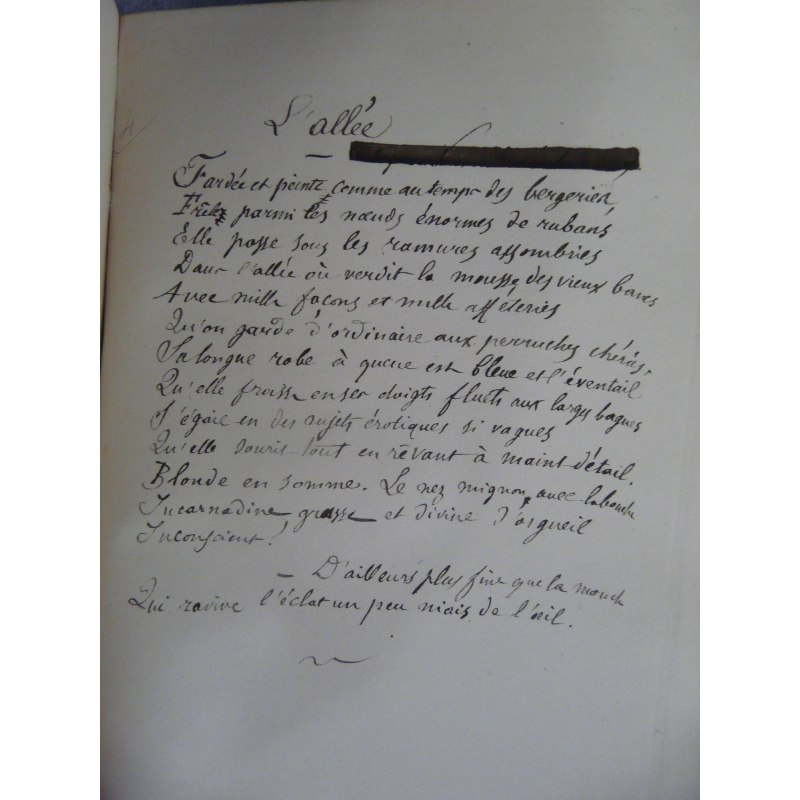 L'allée
Fardée et peinte comme au temps des bergeries,
Frêle parmi les nœuds énormes de rubans
Elle passe sous les ramures assombries
Dans l'allée où verdit la mousse des vieux bancs
Avec mille façons et mille afféteries
Qu'on garde d'ordinaire aux perruches chéries,
Sa longue robe à queue est bleue et l'éventail
Qu'elle froisse en ses doigts fluets aux larges bagues
S'égaie en des sujets érotiques si vagues
Qu'elle sourit tout en rêvant à maint détail.
Blonde en somme. Le nez mignon avec la bouche
Incarnadine grasse et divine d'orgueil
Inconscient!
— D'ailleurs plus fine que la mouche
Qui ravive l'éclat un peu niais de l'œil.